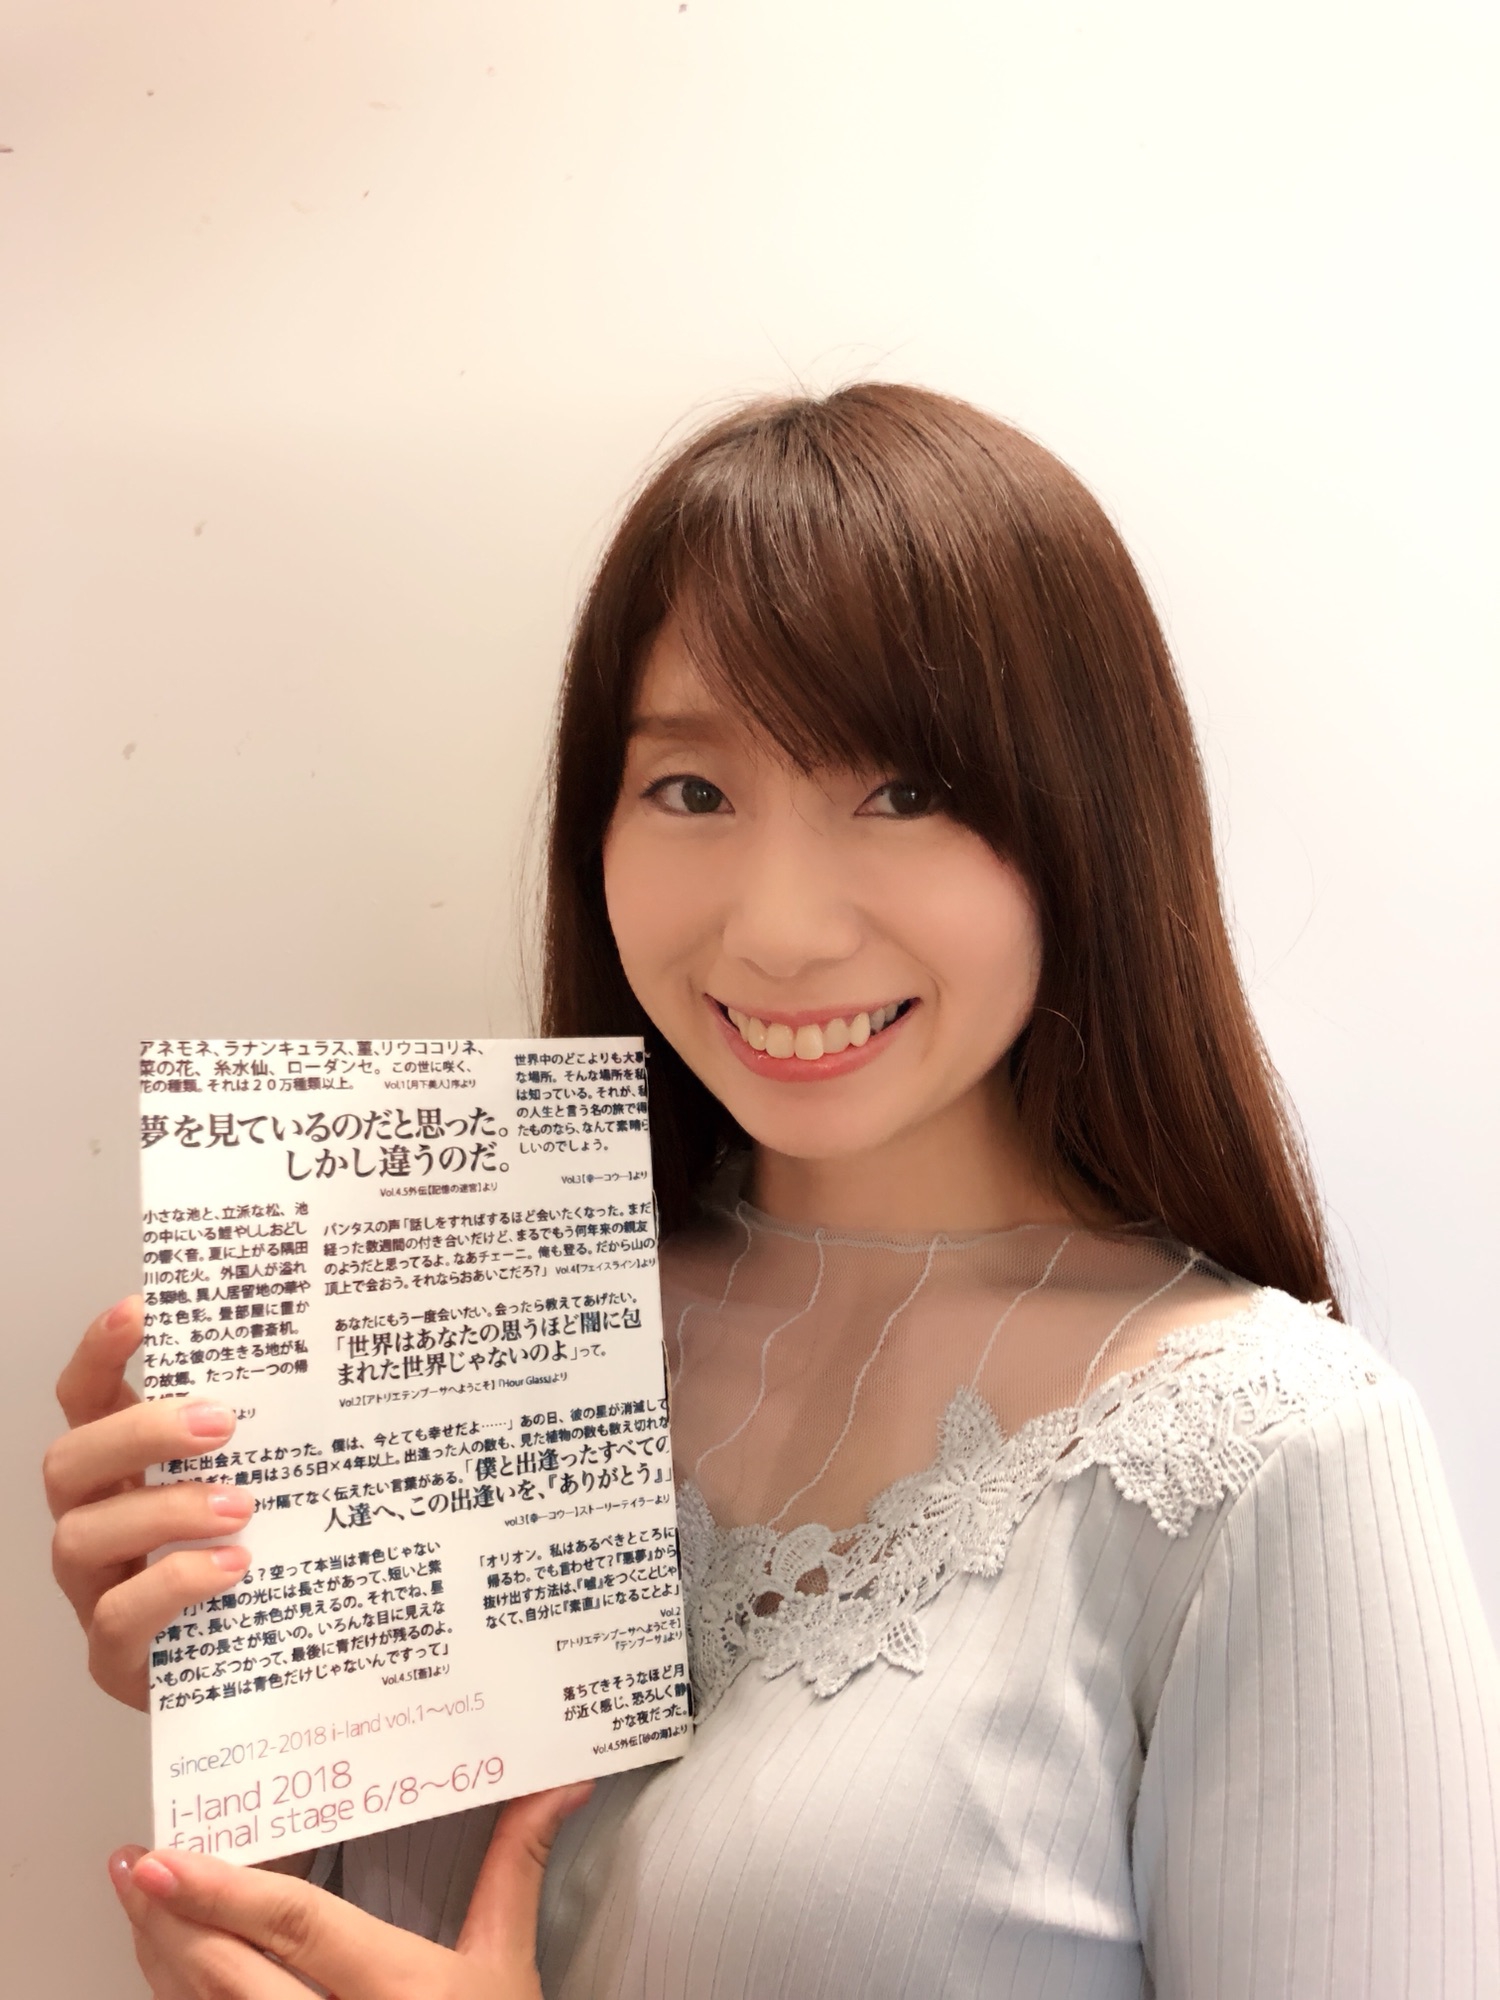 アネモネ、ラナンキュラス、菫、リウココリネ、
菜の花、糸水仙、ローダンセ。この世に咲く、
花の種類。それは２０万種類以上。
Vol.1【月下美人】序より
世界中のどこよりも大事
な場所。そんな場所を私
は知っている。それが、私
の人生と言う名の旅で得
たものなら、なんて素晴ら
しいのでしょう。
Vol.3【幸―コウ―】より
夢を見ているのだと思った。
しかし違うのだ。
Vol.4.5外伝【記憶の迷宮】より
小さな池と、立派な松、池
の中にいる鯉やししおどし
の響く音。夏に上がる隅田
川の花火。外国人が溢れ
る築地、異人居留地の華や
かな色彩。畳部屋に置か
れた、あの人の書斎机。
そんな彼の生きる地が私
の故郷。たった一つの帰
より
バンタスの声「話しをすればするほど会いたくなった。まだ
経った数週間の付き合いだけど、まるでもう何年来の親友
のようだと思ってるよ。なあチェーニ。俺も登る。だから山の
頂上で会おう。それならおあいこだろ？」 Vol.4【フェイスライン】より
あなたにもう一度会いたい。会ったら教えてあげたい。
「世界はあなたの思うほど闇に包
まれた世界じゃないのよ」って。
Vol.2【アトリエテンブーサへようこそ】『Hour Glass』より
「君に出会えてよかった。僕は、今とても幸せだよ……」あの日、彼の星が消滅して
ぎた歳月は３６５日×４年以上。出逢った人の数も、見た植物の数も数え切れな
分け隔てなく伝えたい言葉がある。「僕と出逢ったすべての
人達へ、この出逢いを、『ありがとう』」
vol.3【幸―コウ―】ストーリーテイラーより
る？空って本当は青色じゃない
？」「太陽の光には長さがあって、短いと紫
や青で、長いと赤色が見えるの。それでね、昼
間はその長さが短いの。いろんな目に見えな
いものにぶつかって、最後に青だけが残るのよ。
だから本当は青色だけじゃないんですって」
Vol.4.5【蒼】より
「オリオン。私はあるべきところに
帰るわ。でも言わせて？『悪夢』から
抜け出す方法は、『嘘』をつくことじゃ
なくて、自分に『素直』になることよ」
Vol.2
【アトリエテンブーサへようこそ】
『テンブーサ』より
落ちてきそうなほど月
が近く感じ、恐ろしく静
かな夜だった。
Vol.4.5外伝【砂の海】より
since2012-2018 i-land vol.1～vol.5
i-land 2018
fainal stage 6/8～6/9